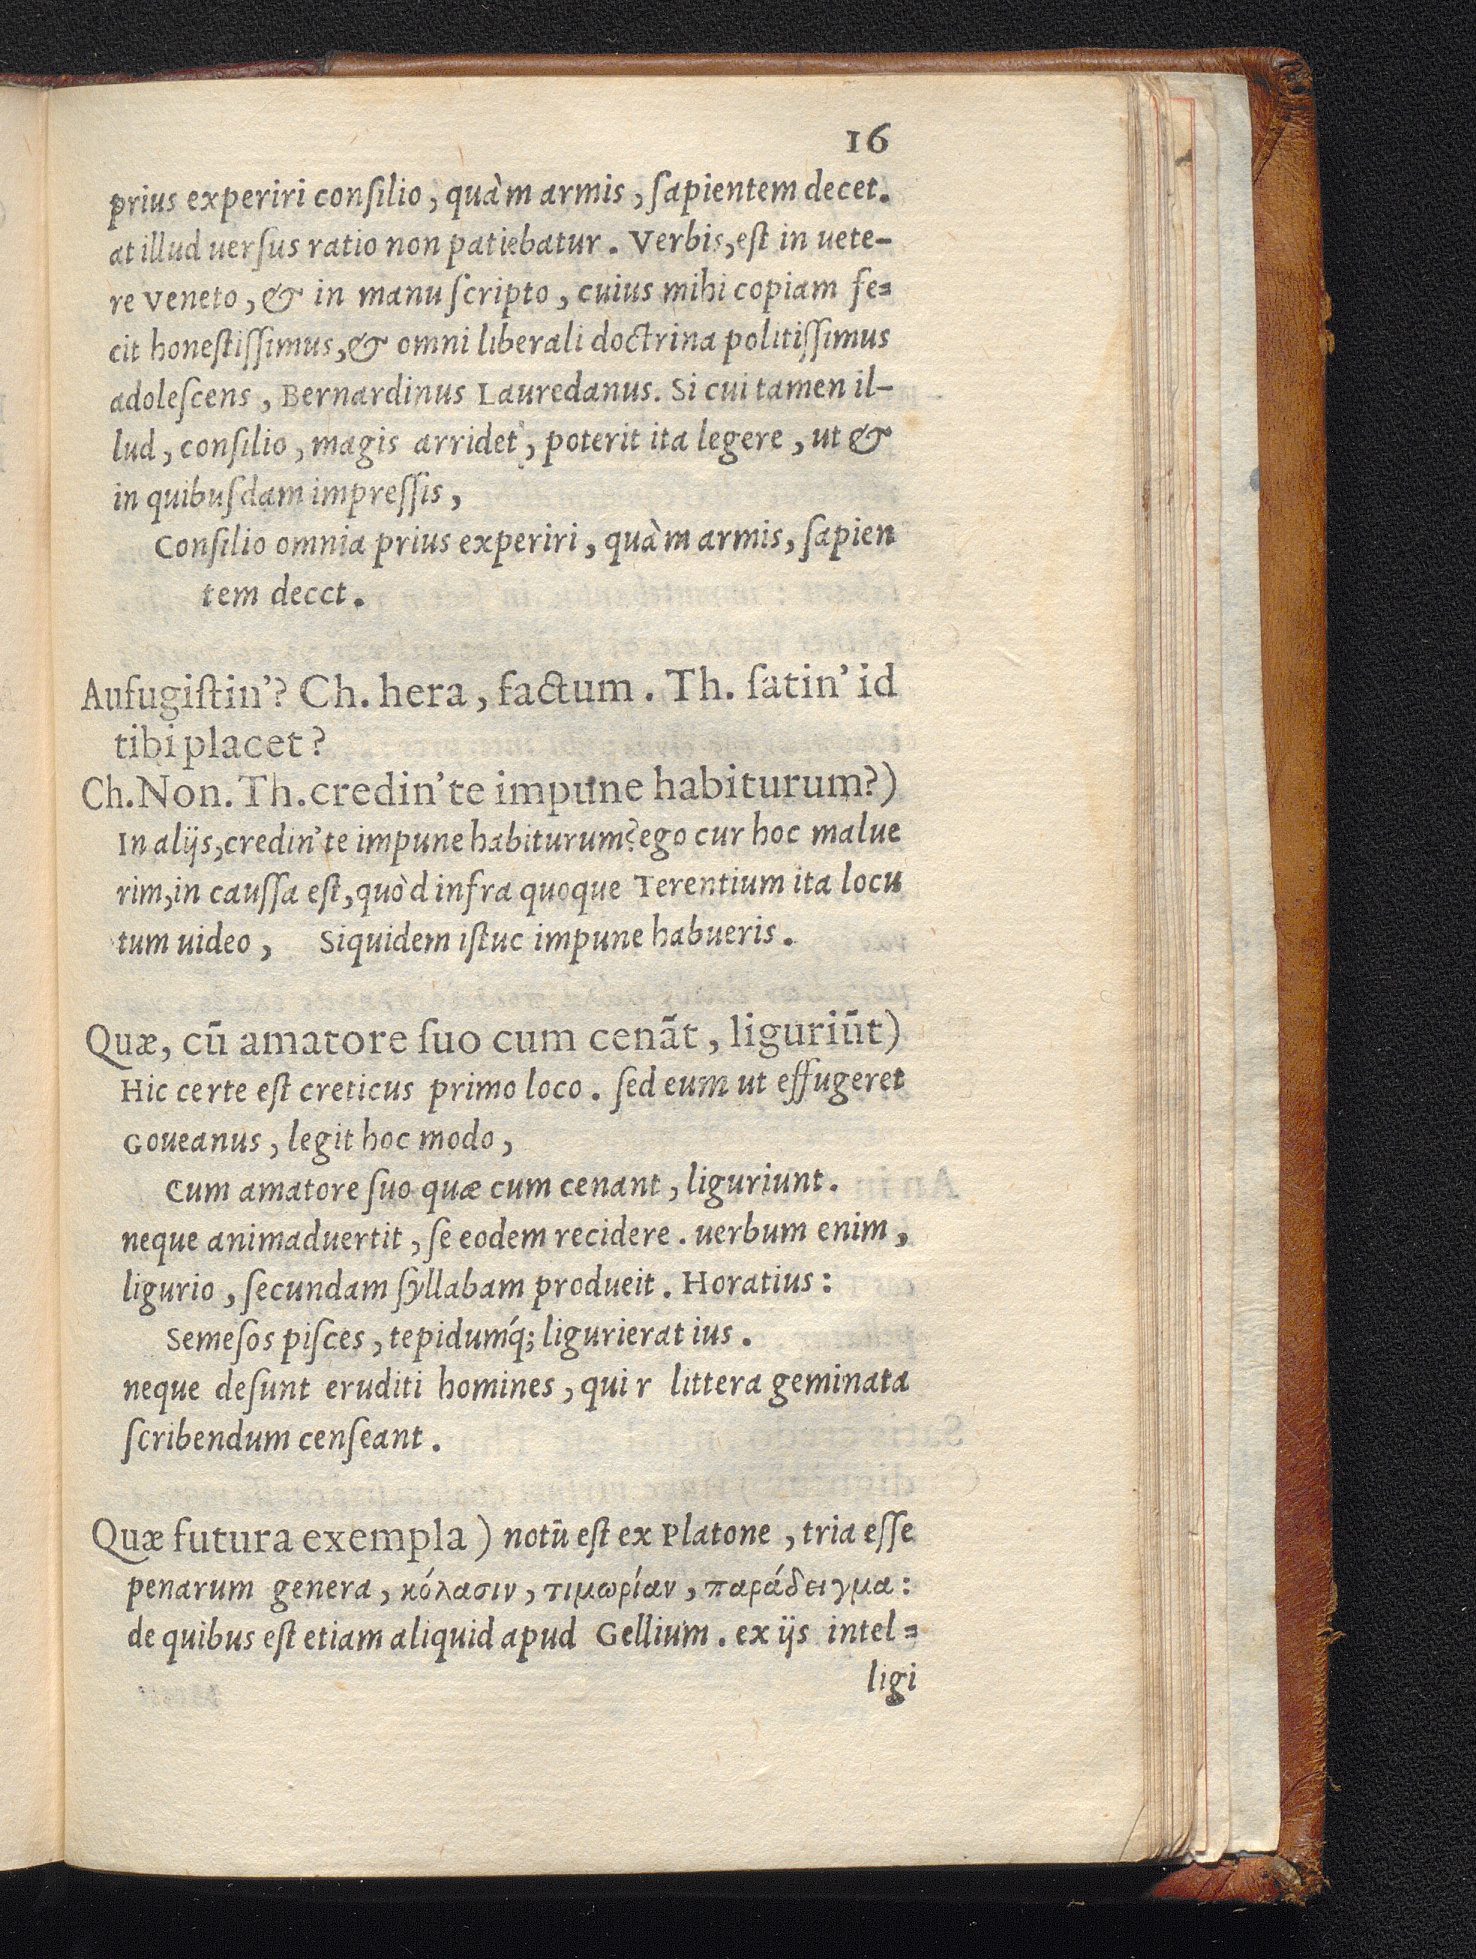 16
prius experiri conſilio, quàm armis, ſapientem decet.
at illud uerſus ratio non patiebatur. Verbis, eſt in uete-
re Veneto, & in manu ſcripto, cuius mihi copiam fe=
cit honeſtiſſimus, & omni liberali doctrina politiſſimus
adoleſcens, Bernardinus Lauredanus. Si cui tamen il-
lud, conſilio, magis arridet, poterit ita legere, ut &
in quibuſdam impreſſis,
Conſilio omnia prius experiri, quàm armis, ſapien
tem decct.
Aufugiſtin'? Ch. hera, factum. Th. ſatin' id
tibi placet?
Ch. Non. Th. credin' te impune habiturum?)
In alijs, credin' te impune habiturum? ego cur hoc malue
rim, in cauſſa eſt, quòd infra quoque Terentium ita locu
tum uideo, Siquidem iſtuc impune habueris.
Quæ, cū amatore ſuo cum cenãt, liguriūt)
Hic certe eſt creticus primo loco. ſed eum ut effugeret
Goueanus, legit hoc modo,
Cum amatore ſuo quæ cum cenant, liguriunt.
neque animaduertit, ſe eodem recidere. uerbum enim,
ligurio, ſecundam ſyllabam produeit. Horatius:
Semeſos piſces, tepidumq́; ligurierat ius.
neque deſunt eruditi homines, qui r littera geminata
ſcribendum cenſeant.
Quæ futura exempla) notū eſt ex Platone, tria eſſe
penarum genera, κόλασιν, τιμωρίαν, παράδειγμα:
de quibus eſt etiam aliquid apud Gellium. ex ijs intel=
ligi